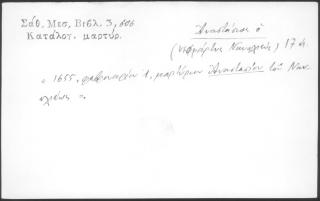 Σάθ. Μεσ. Βιβλ. 3, 606
Κατάλογ. μαρτύρ.
Ἀναστάσιος ὁ
(νεομάρτυς Ναυπλιεὺς) 17 αἰ.
" 1655, φεβρουαρίου 1, μαρτύριον Ἀναστασίου τοῦ Ναυ-
πλιέως ".